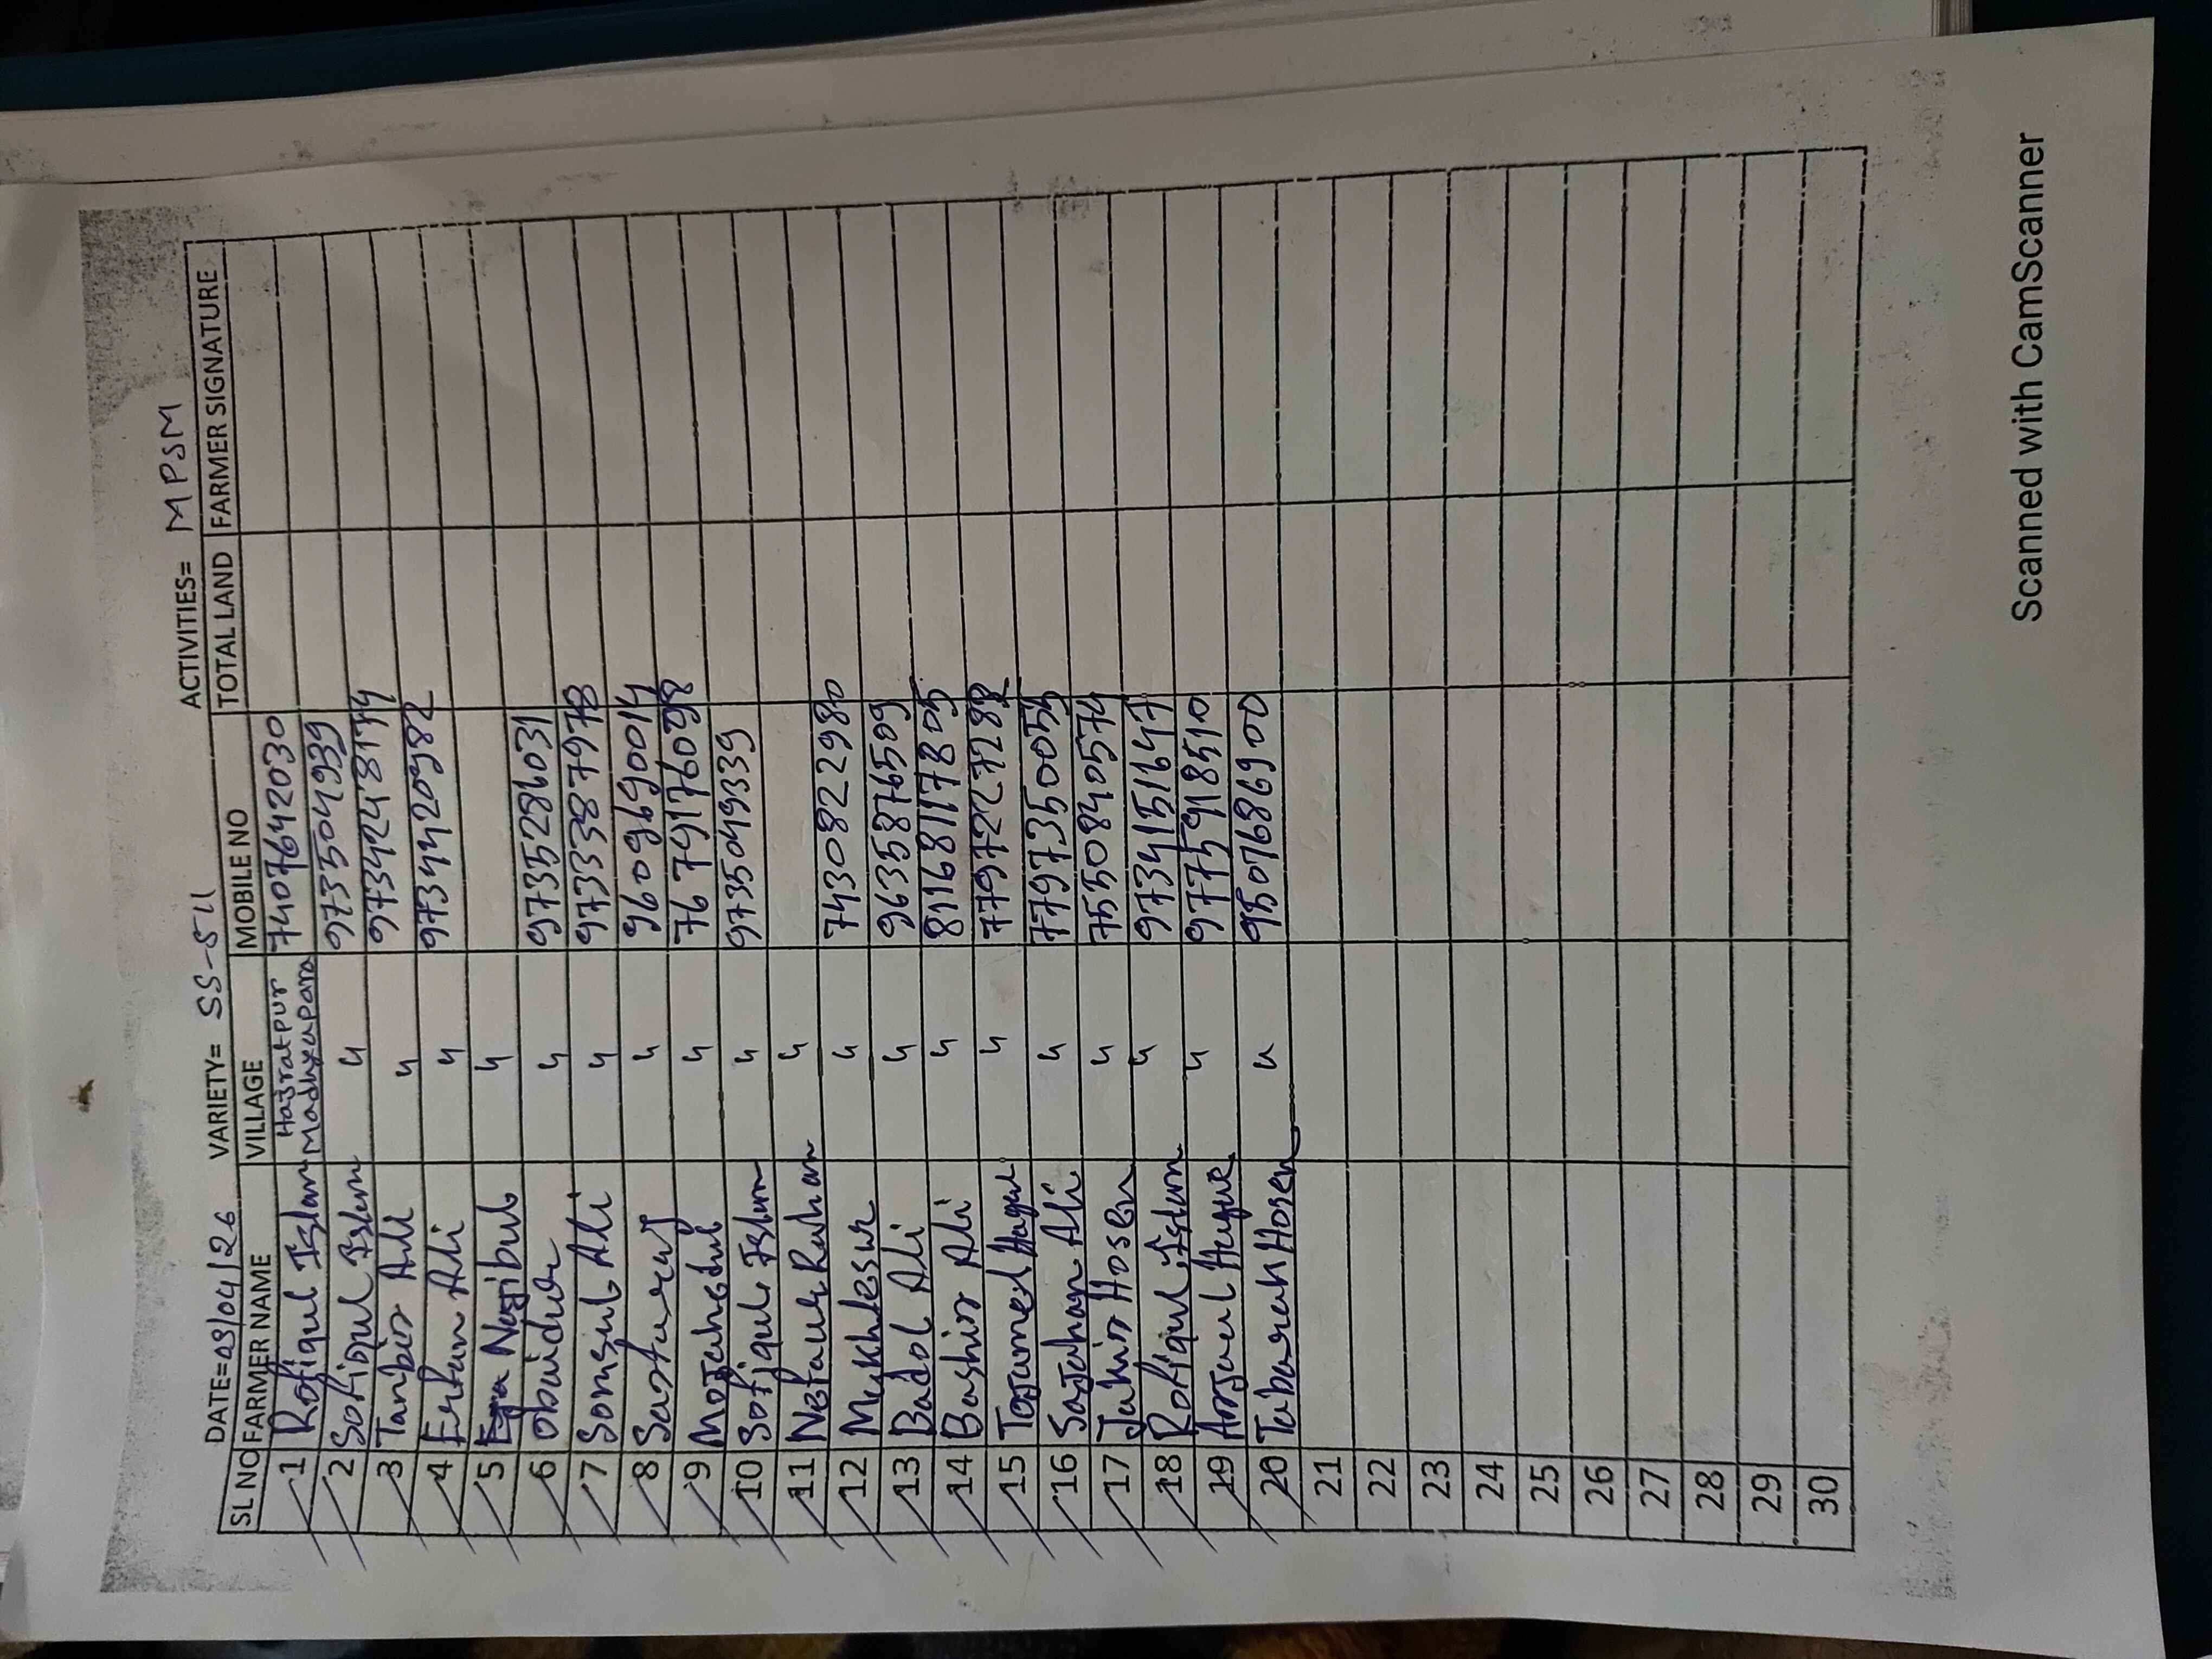 DATE=03/04/26 VARIETY= SS-511 ACTIVITIES= MPSM
SL NO FARMER NAME VILLAGE MOBILE NO TOTAL LAND FARMER SIGNATURE
1 Rofiqul Islam Hazratpur Madhyapara 7407642030
2 Sofiqul Islam 〃 9735504939
3 Tanbir Ali 〃 9734248174
4 Erfan Ali 〃 9734420982
5 Nazibul 〃
6 Obaidur 〃 9735286031
7 Somsul Ali 〃 9733387978
8 〃 9609690014
9 Motahedul 〃 7679176098
10 Sofiqul Islam 〃 9735049339
11 Nefaur Rahan 〃
12 Mukhlesur 〃 7430822980
13 Badol Ali 〃 9635876509
14 Bashir Ali 〃 81168117805
15 Tojamel Haque 〃 7797227288
16 Sajahan Ali 〃 7797350054
17 Jahir Hosen 〃 7550840574
18 Rofiqul Islam 〃 9734151647
19 Arjaul Huque 〃 9775918510
20 Tabarak Hosen 〃 9507686900
21
22
23
24
25
26
27
28
29
30
Scanned with CamScanner